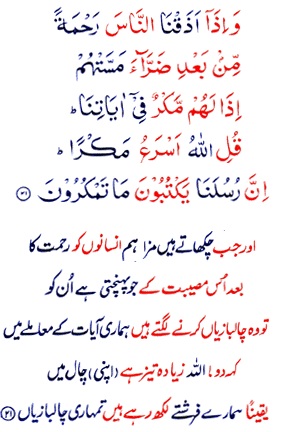 وَ اِذَاۤ اَذَقْنَا النَّاسَ رَحْمَةً
مِّنْۢ بَعْدِ ضَرَّآءَ مَسَّتْهُمْ
اِذَا لَهُمْ مَّكْرٌ فِیْۤ اٰيَاتِنَا ؕ
قُلِ اللّٰهُ اَسْرَعُ مَكْرًا ؕ
اِنَّ رُسُلَنَا يَكْتُبُوْنَ مَا تَمْكُرُوْنَ ﴿۲۱﴾
اور جب چکھاتے ہیں مزا ہم انسانوں کو رحمت کا
بعد اُس مصیبت کے جو پہنچتی ہے اُن کو
تو وہ چالبازیاں کرنے لگتے ہیں ہماری آیات کے معاملے میں
کہہ دو ! اللہ زیادہ تیز ہے (اپنی) چال میں
یقیناً ہمارے فرشتے لکھ رہے ہیں تمہاری چالبازیاں ﴿۲۱﴾